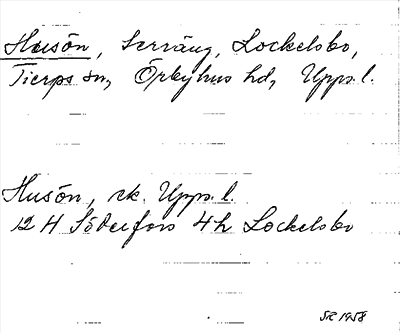 Husön, terräng, Lockelsbo,
Tierps sn, Örbyhus hd, Upps. l.
Husön, ek. Upps. l.
12 H Söderfors 4h Lockelsbo
SR 1958